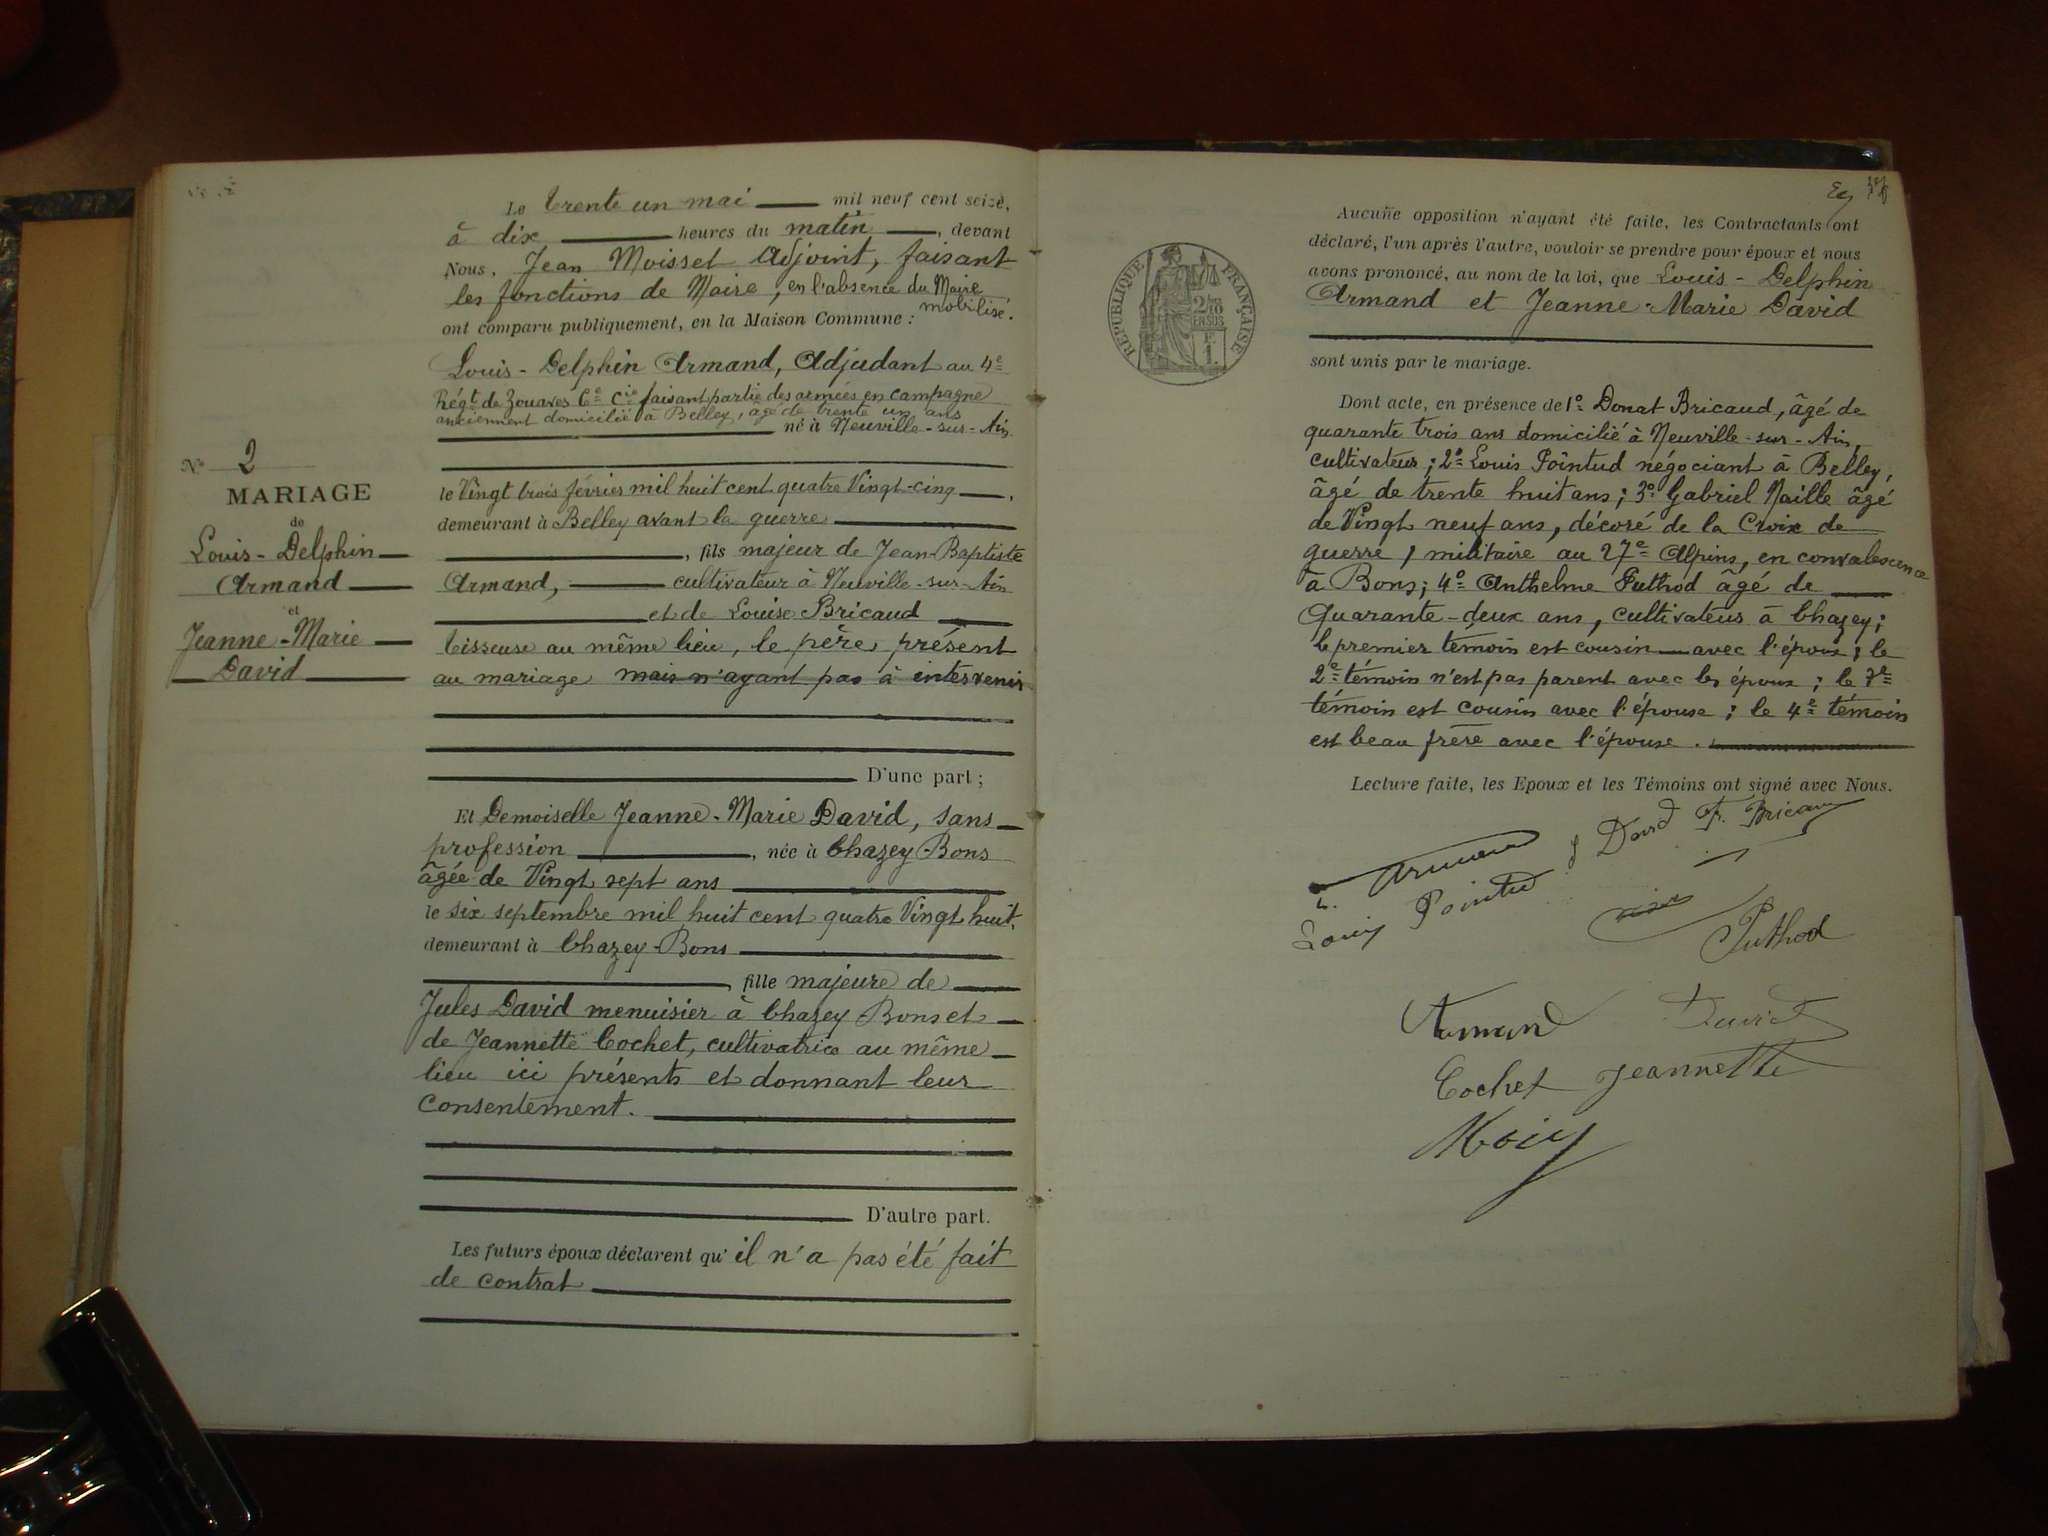 Le trente un mai mil neuf cent seize,
à dix heures du matin, devant
Nous, Jean Moisset Adjoint, faisant
les fonctions de Maire, en l'absence du Maire
mobilisé.
ont comparu publiquement, en la Maison Commune :
Louis-Delphin Armand, Adjudant au 4e
Régt de Zouaves 6e Cie faisant partie des armées en campagne
anciennement domicilié à Belley, âgé de trente un ans
né à Neuville-sur-Ain
le Vingt trois février mil huit cent quatre Vingt-cinq,
demeurant à Belley avant la guerre
, fils majeur de Jean-Baptiste
Armand, cultivateur à Neuville-sur-Ain
et de Louise Bricaud
tisseuse au même lieu, le père présent
au mariage mais n'ayant pas à intervenir
D'une part ;
Et Demoiselle Jeanne-Marie David, sans
profession, née à Chazey-Bons
âgée de Vingt sept ans
le six septembre mil huit cent quatre Vingt huit,
demeurant à Chazey-Bons
, fille majeure de
Jules David menuisier à Chazey Bons et
de Jeannette Cochet, cultivatrice au même
lieu ici présents et donnant leur
consentement.
D'autre part.
Les futurs époux déclarent qu'il n'a pas été fait
de contrat
No 2
MARIAGE
de
Louis-Delphin
Armand
et
Jeanne-Marie
David
RÉPUBLIQUE FRANÇAISE
2/10
EN SUS
1F
Aucune opposition n'ayant été faite, les Contractants ont
déclaré, l'un après l'autre, vouloir se prendre pour époux et nous
avons prononcé, au nom de la loi, que Louis-Delphin
Armand et Jeanne-Marie David
sont unis par le mariage.
Dont acte, en présence de 1o Donat Bricaud, âgé de
quarante trois ans domicilié à Neuville-sur-Ain,
cultivateur ; 2o Louis Pointud négociant à Belley,
âgé de trente huit ans ; 3o Gabriel Naille âgé
de Vingt neuf ans, décoré de la Croix de
guerre, militaire au 27e Alpins, en convalescence
à Bons ; 4o Anthelme Puthod âgé de
Quarante-deux ans, cultivateur à Chazey ;
le premier témoin est cousin avec l'époux ; le
2e témoin n'est pas parent avec les époux ; le 3e
témoin est cousin avec l'épouse ; le 4e témoin
est beau frère avec l'épouse.
Lecture faite, les Epoux et les Témoins ont signé avec Nous.
Armand J David F. Bricaud
Louis Pointud
Puthod
Armand David
Cochet Jeannette